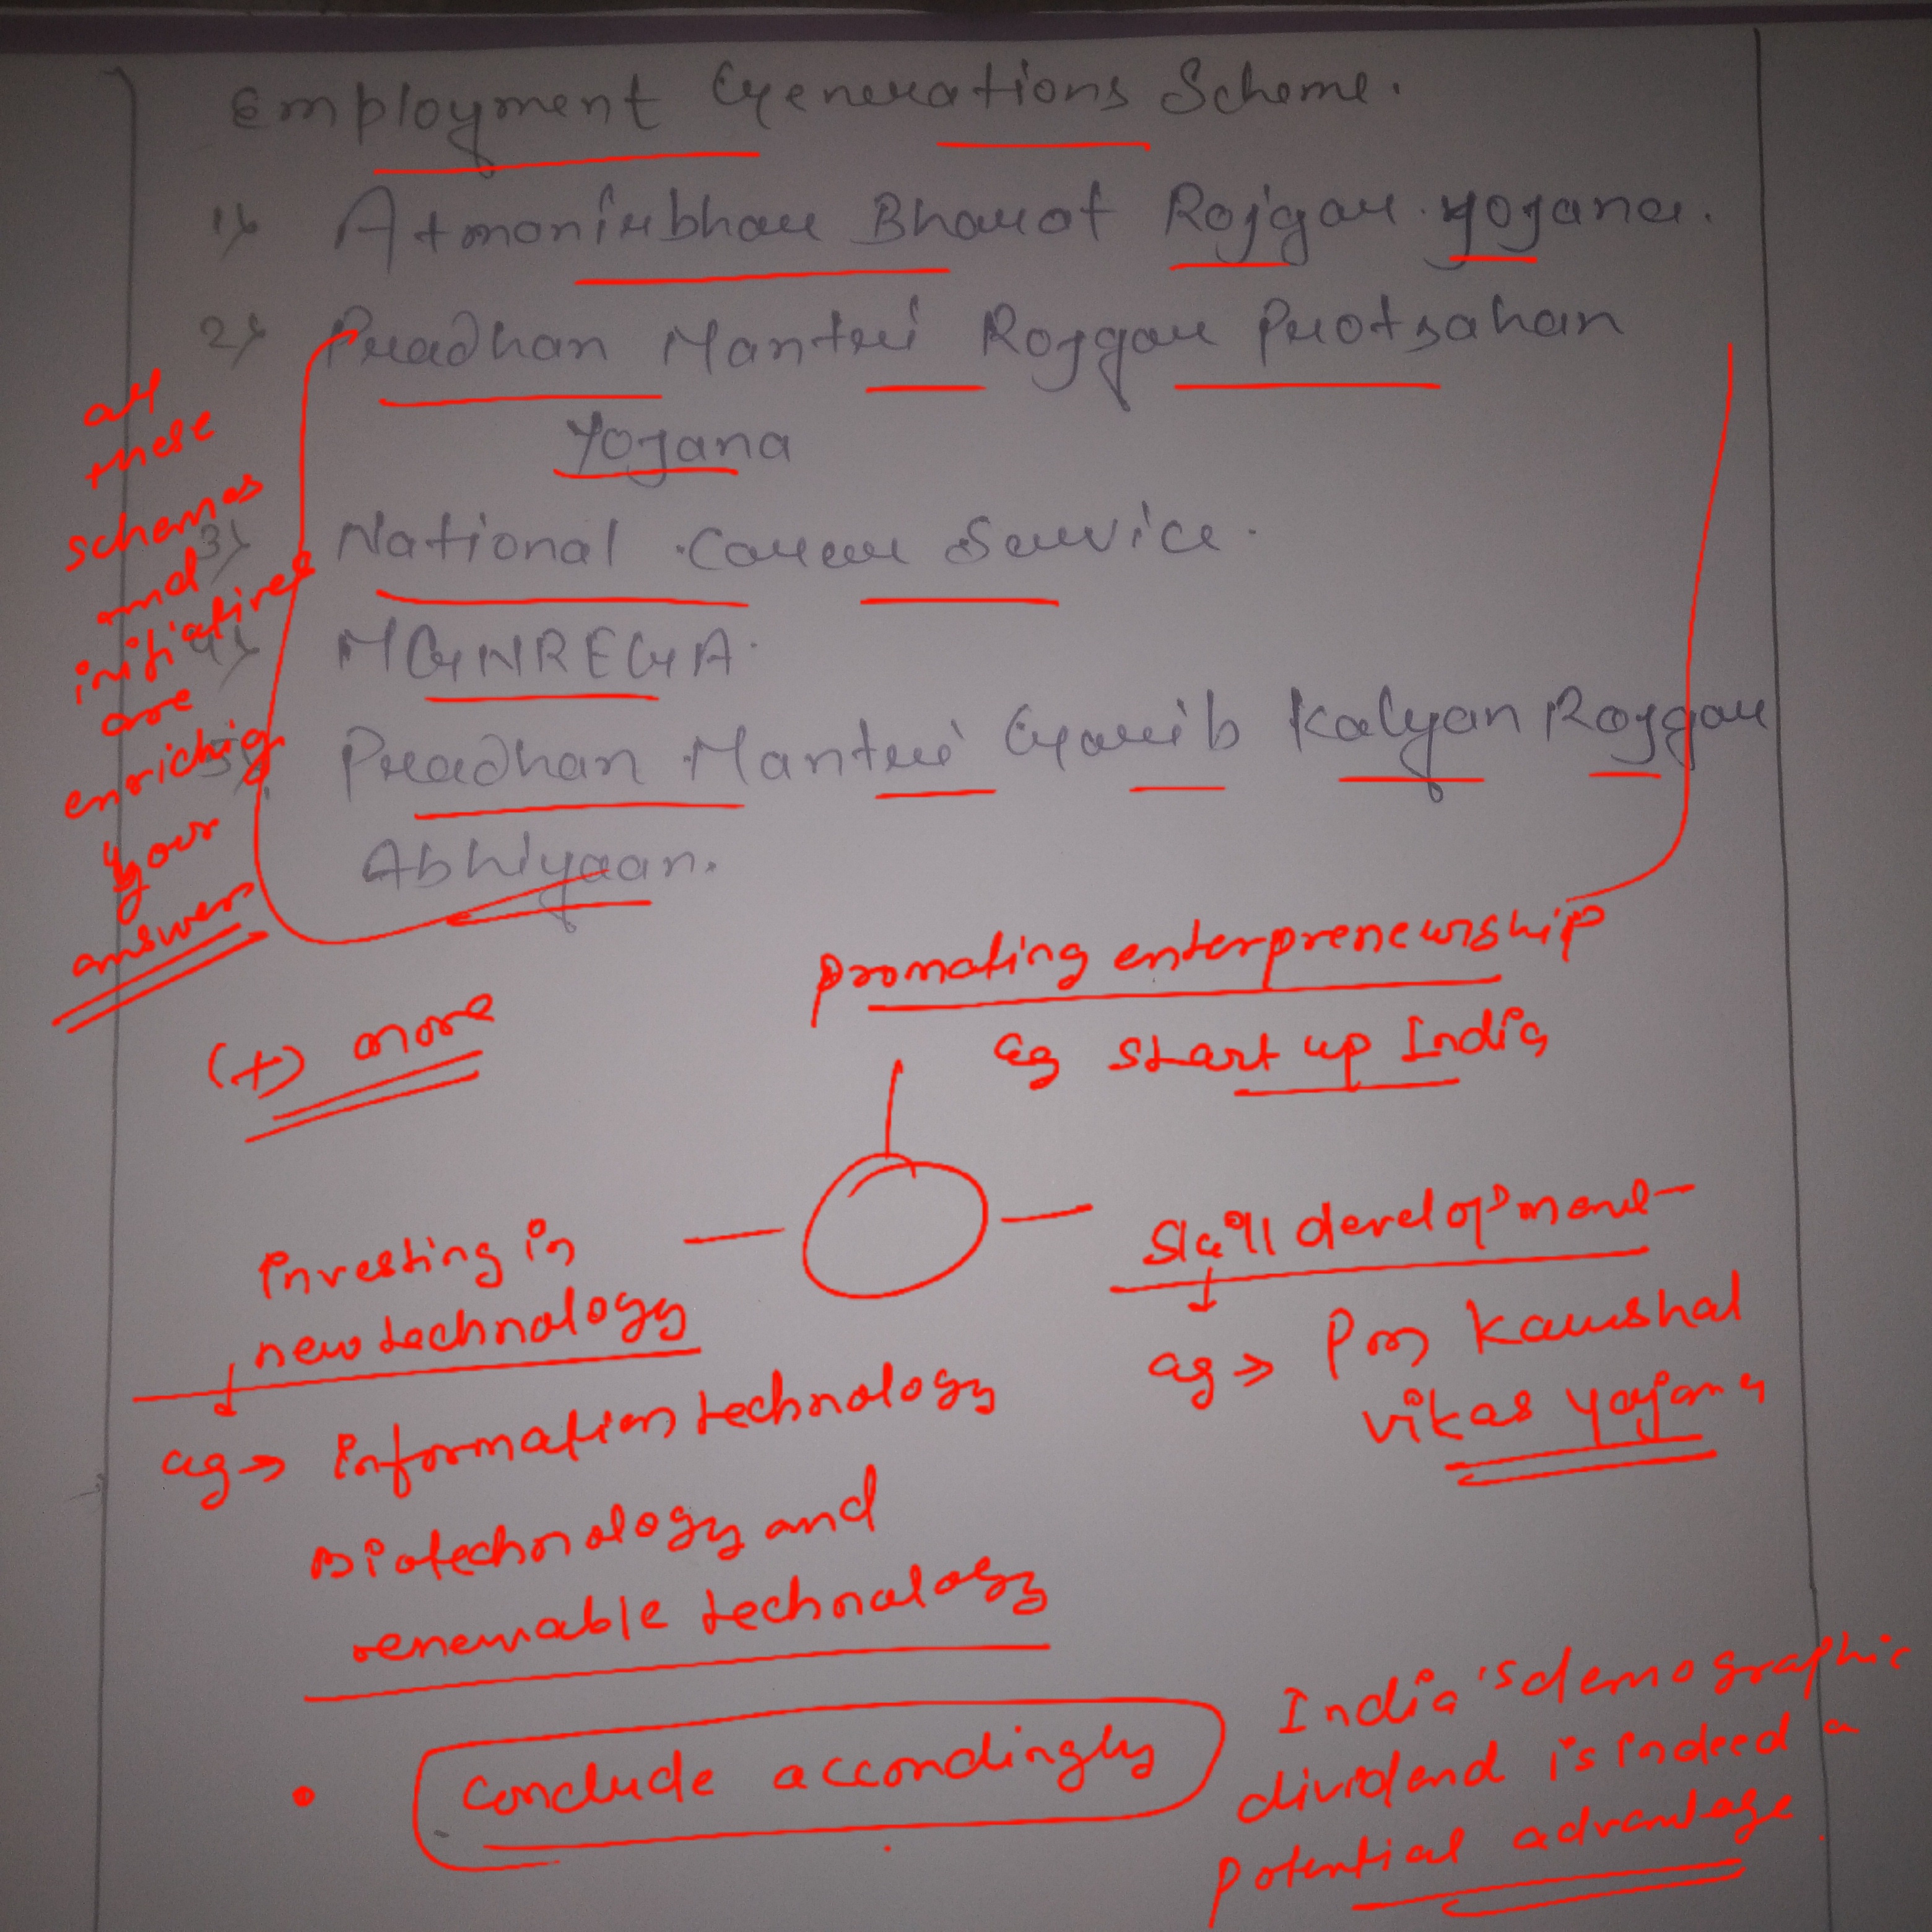 Employment Generations Scheme.
1) Atmanirbhar Bharat Rojgar yojana.
2) Pradhan Mantri Rojgar Protsahan
Yojana
3) National Career Service.
4) MGNREGA.
5) Pradhan Mantri Garib Kalyan Rojgar
Abhiyaan.
all
these
schemes
and
initiatives
are
enrichig
your
answer
(+) more
promating enterpreneurship
eg start up India
Investing in
new technology
eg → Information technology
Biotechnology and
renewable technology
Skill development
eg → Pm Kaushal
vikas yojana
• conclude accondingly
India's demographic
dividend is indeed a
potential advantage